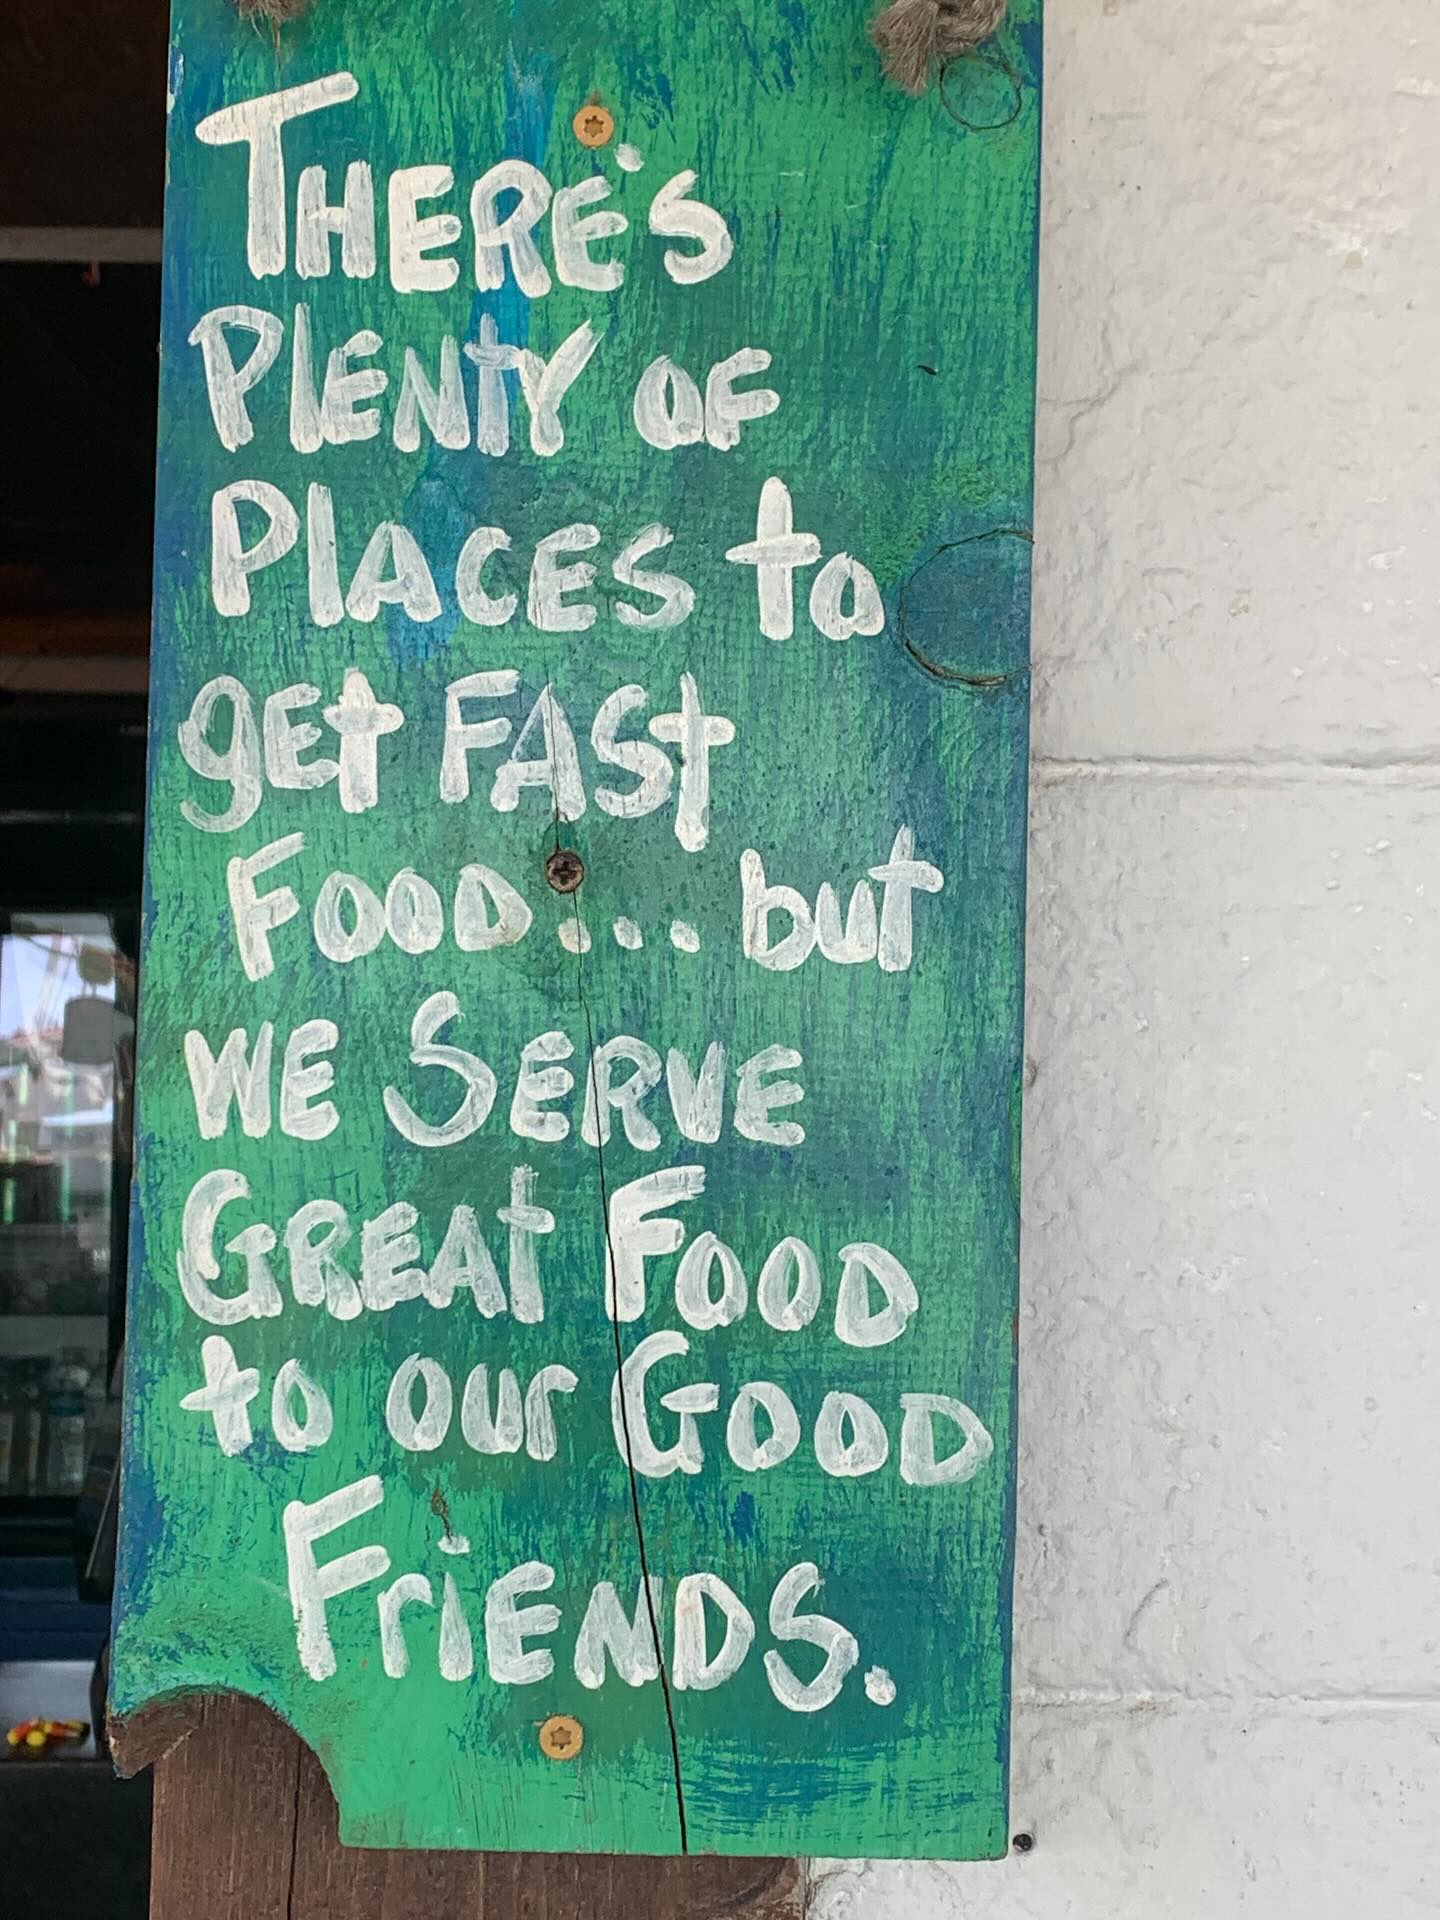 THERE'S
PlENtY OF
PlACES to
gEt FASt
FOOD... but
WE SERVE
GREAt FOOD
to our GOOD
FriENDS.